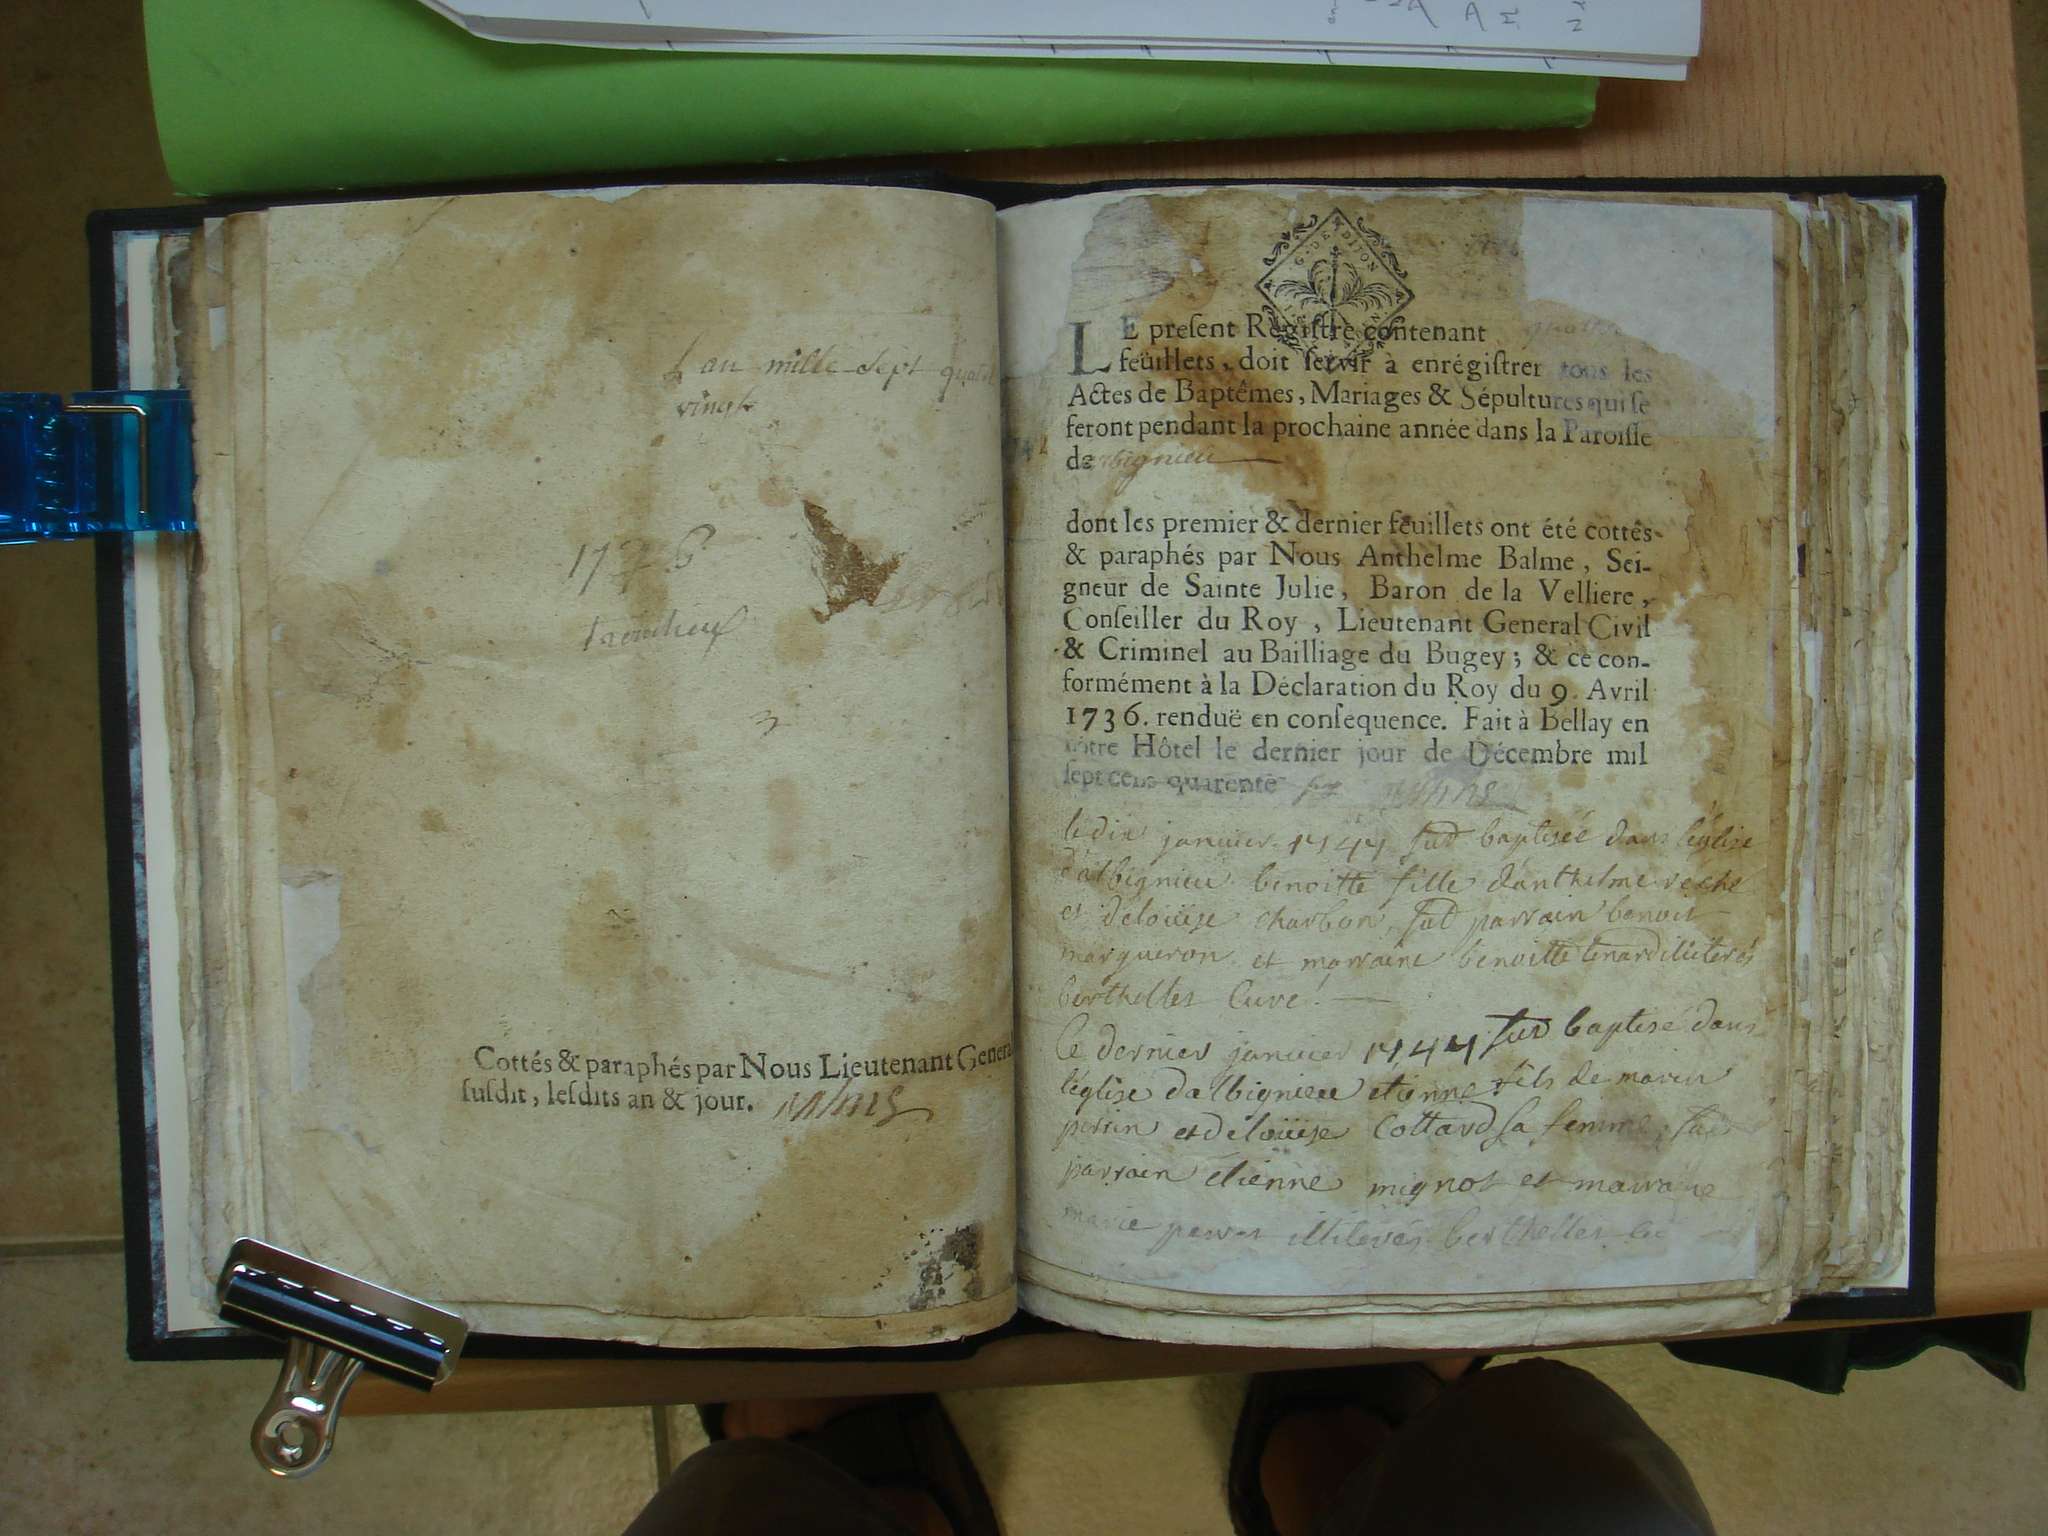 L'an mille sept quatre
vingt
3
Cottés & paraphés par Nous Lieutenant Genera
susdit, lesdits an & jour.
G. DE DIJON
LE present Registre contenant
feüillets, doit servir à enrégistrer tous les
Actes de Baptêmes, Mariages & Sépultures qui se
feront pendant la prochaine année dans la Paroisse
de
dont les premier & dernier feuillets ont été cottés
& paraphés par Nous Anthelme Balme, Sei-
gneur de Sainte Julie, Baron de la Velliere,
Conseiller du Roy, Lieutenant General Civil
& Criminel au Bailliage du Bugey; & ce con-
formément à la Déclaration du Roy du 9. Avril
1736. renduë en consequence. Fait à Bellay en
nôtre Hôtel le dernier jour de Décembre mil
sept cens quarente
le dix janvier 1744 fut baptisée dans l'église
d'albignieu benoitte fille d'anthelme
et de loüise charbon, fut parrain benoit
marqueron et marraine benoitte
berthelles Curé.
le dernier janvier 1744 fut baptisé dans
l'église d'albignieu etienne fils de
perrin et de loüise Cottard sa femme, fut
parrain etienne mignot et marraine
marie illiterés berthelles